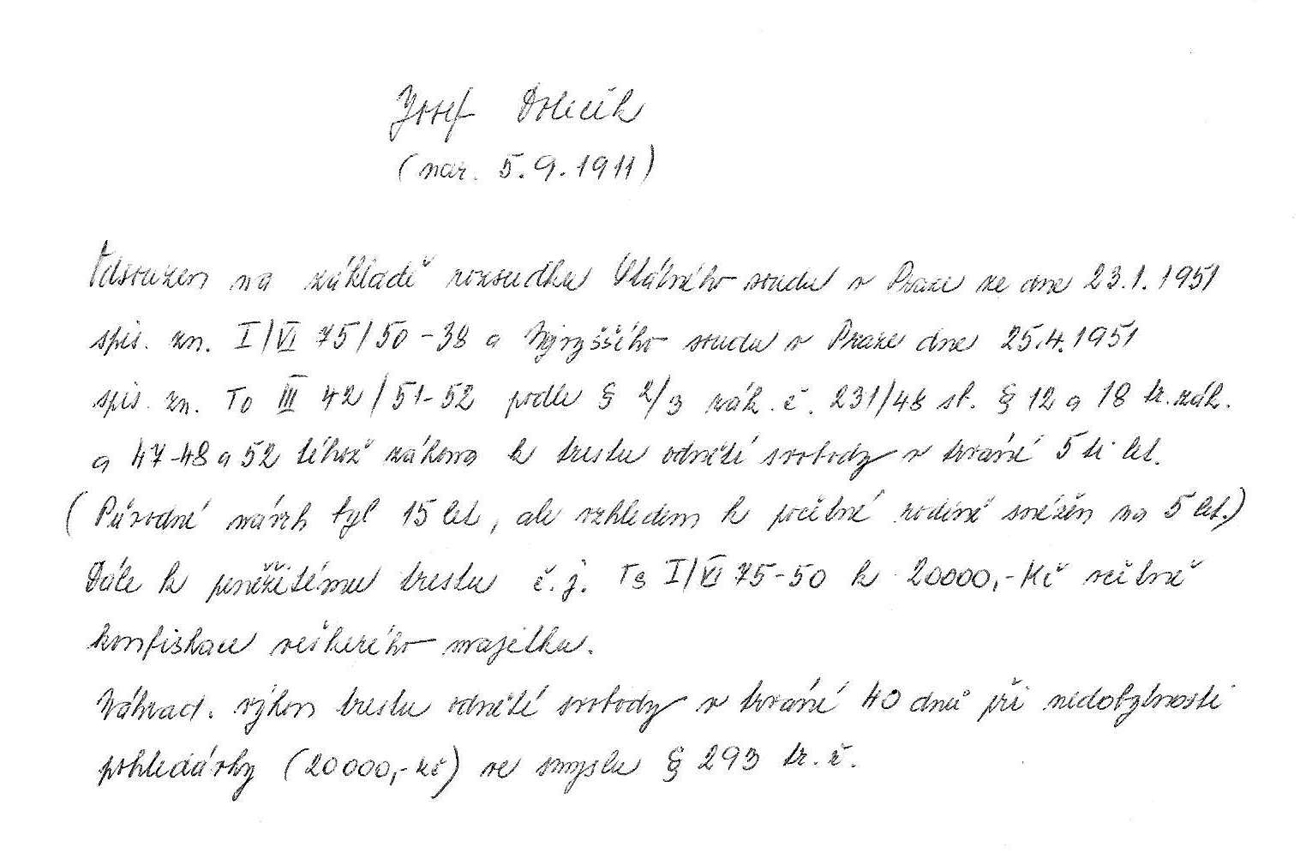 Josef Doleček
(nar. 5.9.1911)
Odsouzen na základě rozsudku Státního soudu v Praze ze dne 23.1.1951
spis. zn. I/VI 75/50-38 a Nejvyššího soudu v Praze dne 25.4.1951
spis. zn. To III 42/51-52 podle § 2/3 zák. č. 231/48 sb. § 12 a 18 tr. zák.
a 47-48 a 52 téhož zákona k trestu odnětí svobody v trvání 5 ti let.
(Původní návrh byl 15 let, ale vzhledem k početné rodině snížen na 5 let.)
Dále k peněžitému trestu č.j. Ts I/VI 75-50 k 20000,-Kč včetně
konfiskace veškerého majetku.
Náhrad. výkon trestu odnětí svobody v trvání 40 dnů při nedobytnosti
pohledávky (20000,-Kč) ve smyslu § 293 tr. ř.